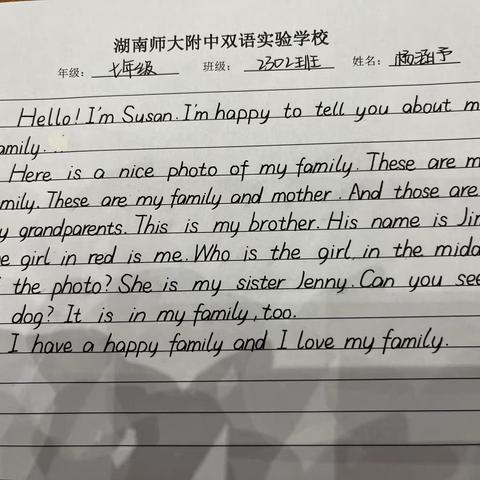 湖南师大附中双语实验学校
年级： 七年级 班级： 2302班 姓名： 杨涵予
Hello! I'm Susan. I'm happy to tell you about m
amily.
Here is a nice photo of my family. These are m
mily. These are my family and mother. And those are
y grandparents. This is my brother. His name is Jim
e girl in red is me. Who is the girl in the midd
the photo? She is my sister Jenny. Can you see
dog? It is in my family, too.
I have a happy family and I love my family.